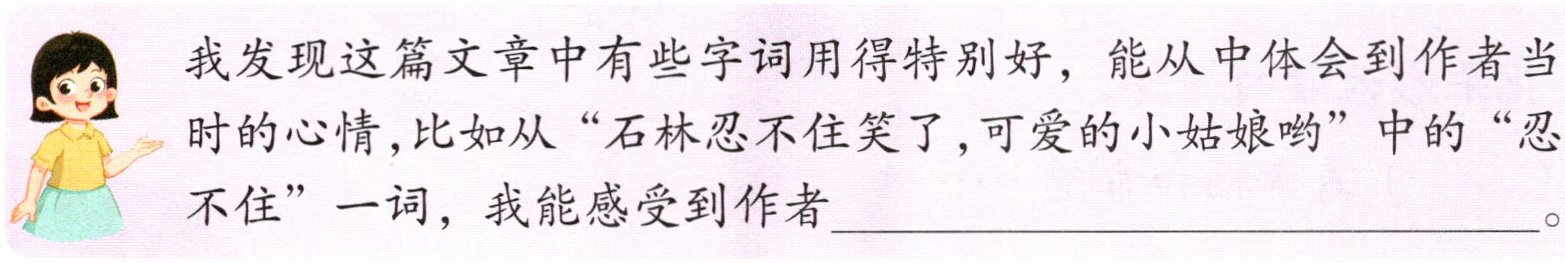 我发现这篇文章中有些字词用得特别好，能从中体会到作者当
时的心情，比如从“石林忍不住笑了，可爱的小姑娘哟”中的“忍
不住”一词，我能感受到作者____________________。